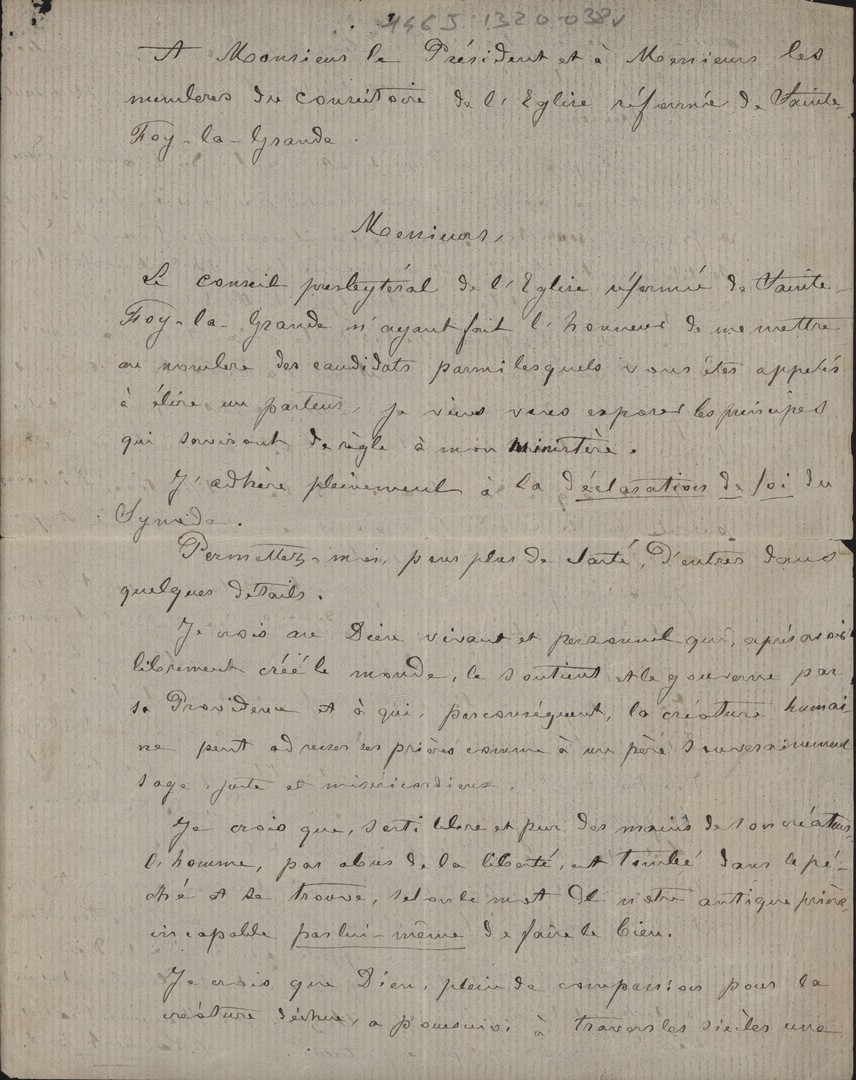 4465 1320-038v
A Monsieur le Président et à Messieurs les
membres du consistoire de l'Eglise réformée de Sainte-
Foy-la-Grande.
Messieurs,
Le conseil presbytéral de l'Eglise réformée de Sainte-
Foy-la-Grande m'ayant fait l'honneur de me mettre
au nombre des candidats parmi lesquels vous êtes appelés
à élire un pasteur, je viens vous exposer les principes
qui serviront de règle à mon ministère.
J'adhère pleinement à la déclaration de foi du
Synode.
Permettez-moi, pour plus de clarté, d'entrer dans
quelques détails.
Je crois au Dieu vivant et personnel qui, après avoir
librement créé le monde, le soutient et le gouverne par
sa Providence et à qui, par conséquent, la créature humai-
ne peut adresser ses prières comme à un père souverainement
sage, juste et miséricordieux.
Je crois que, sorti libre et pur des mains de son créateur,
l'homme, par abus de la liberté, est tombé dans le pé-
ché et se trouve, selon le mot de notre antique prière,
incapable par lui-même de faire le bien.
Je crois que Dieu, plein de compassion pour la
créature déchue, a poursuivi à travers les siècles une